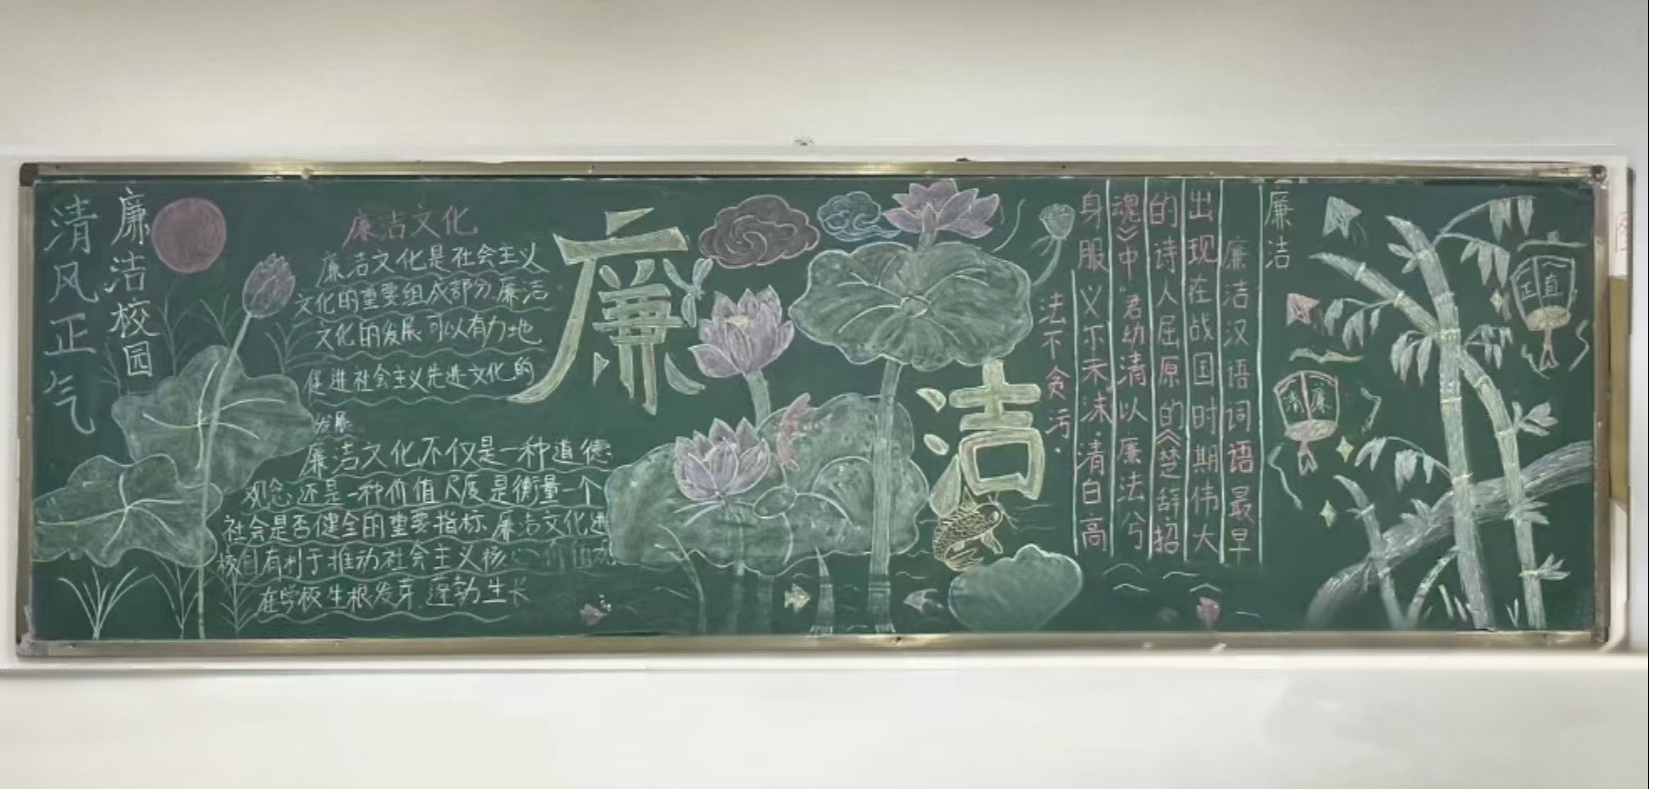 清风正气
廉洁校园
廉洁文化
廉洁文化是社会主义
文化的重要组成部分,廉洁
文化的发展可以有力地
促进社会主义先进文化的
发展
廉洁文化不仅是一种道德
观念,还是一种价值尺度是衡量一个
社会是否健全的重要指标,廉洁文化进
校园有利于推动社会主义核心价值观
在学校生根发芽,蓬勃生长
廉
洁
廉洁
廉洁汉语词语最早
出现在战国时期伟大
的诗人屈原的《楚辞招
魂》中"君幼清以廉法兮
身服义尔未沫"清白高
法不贪污.
正直
清廉